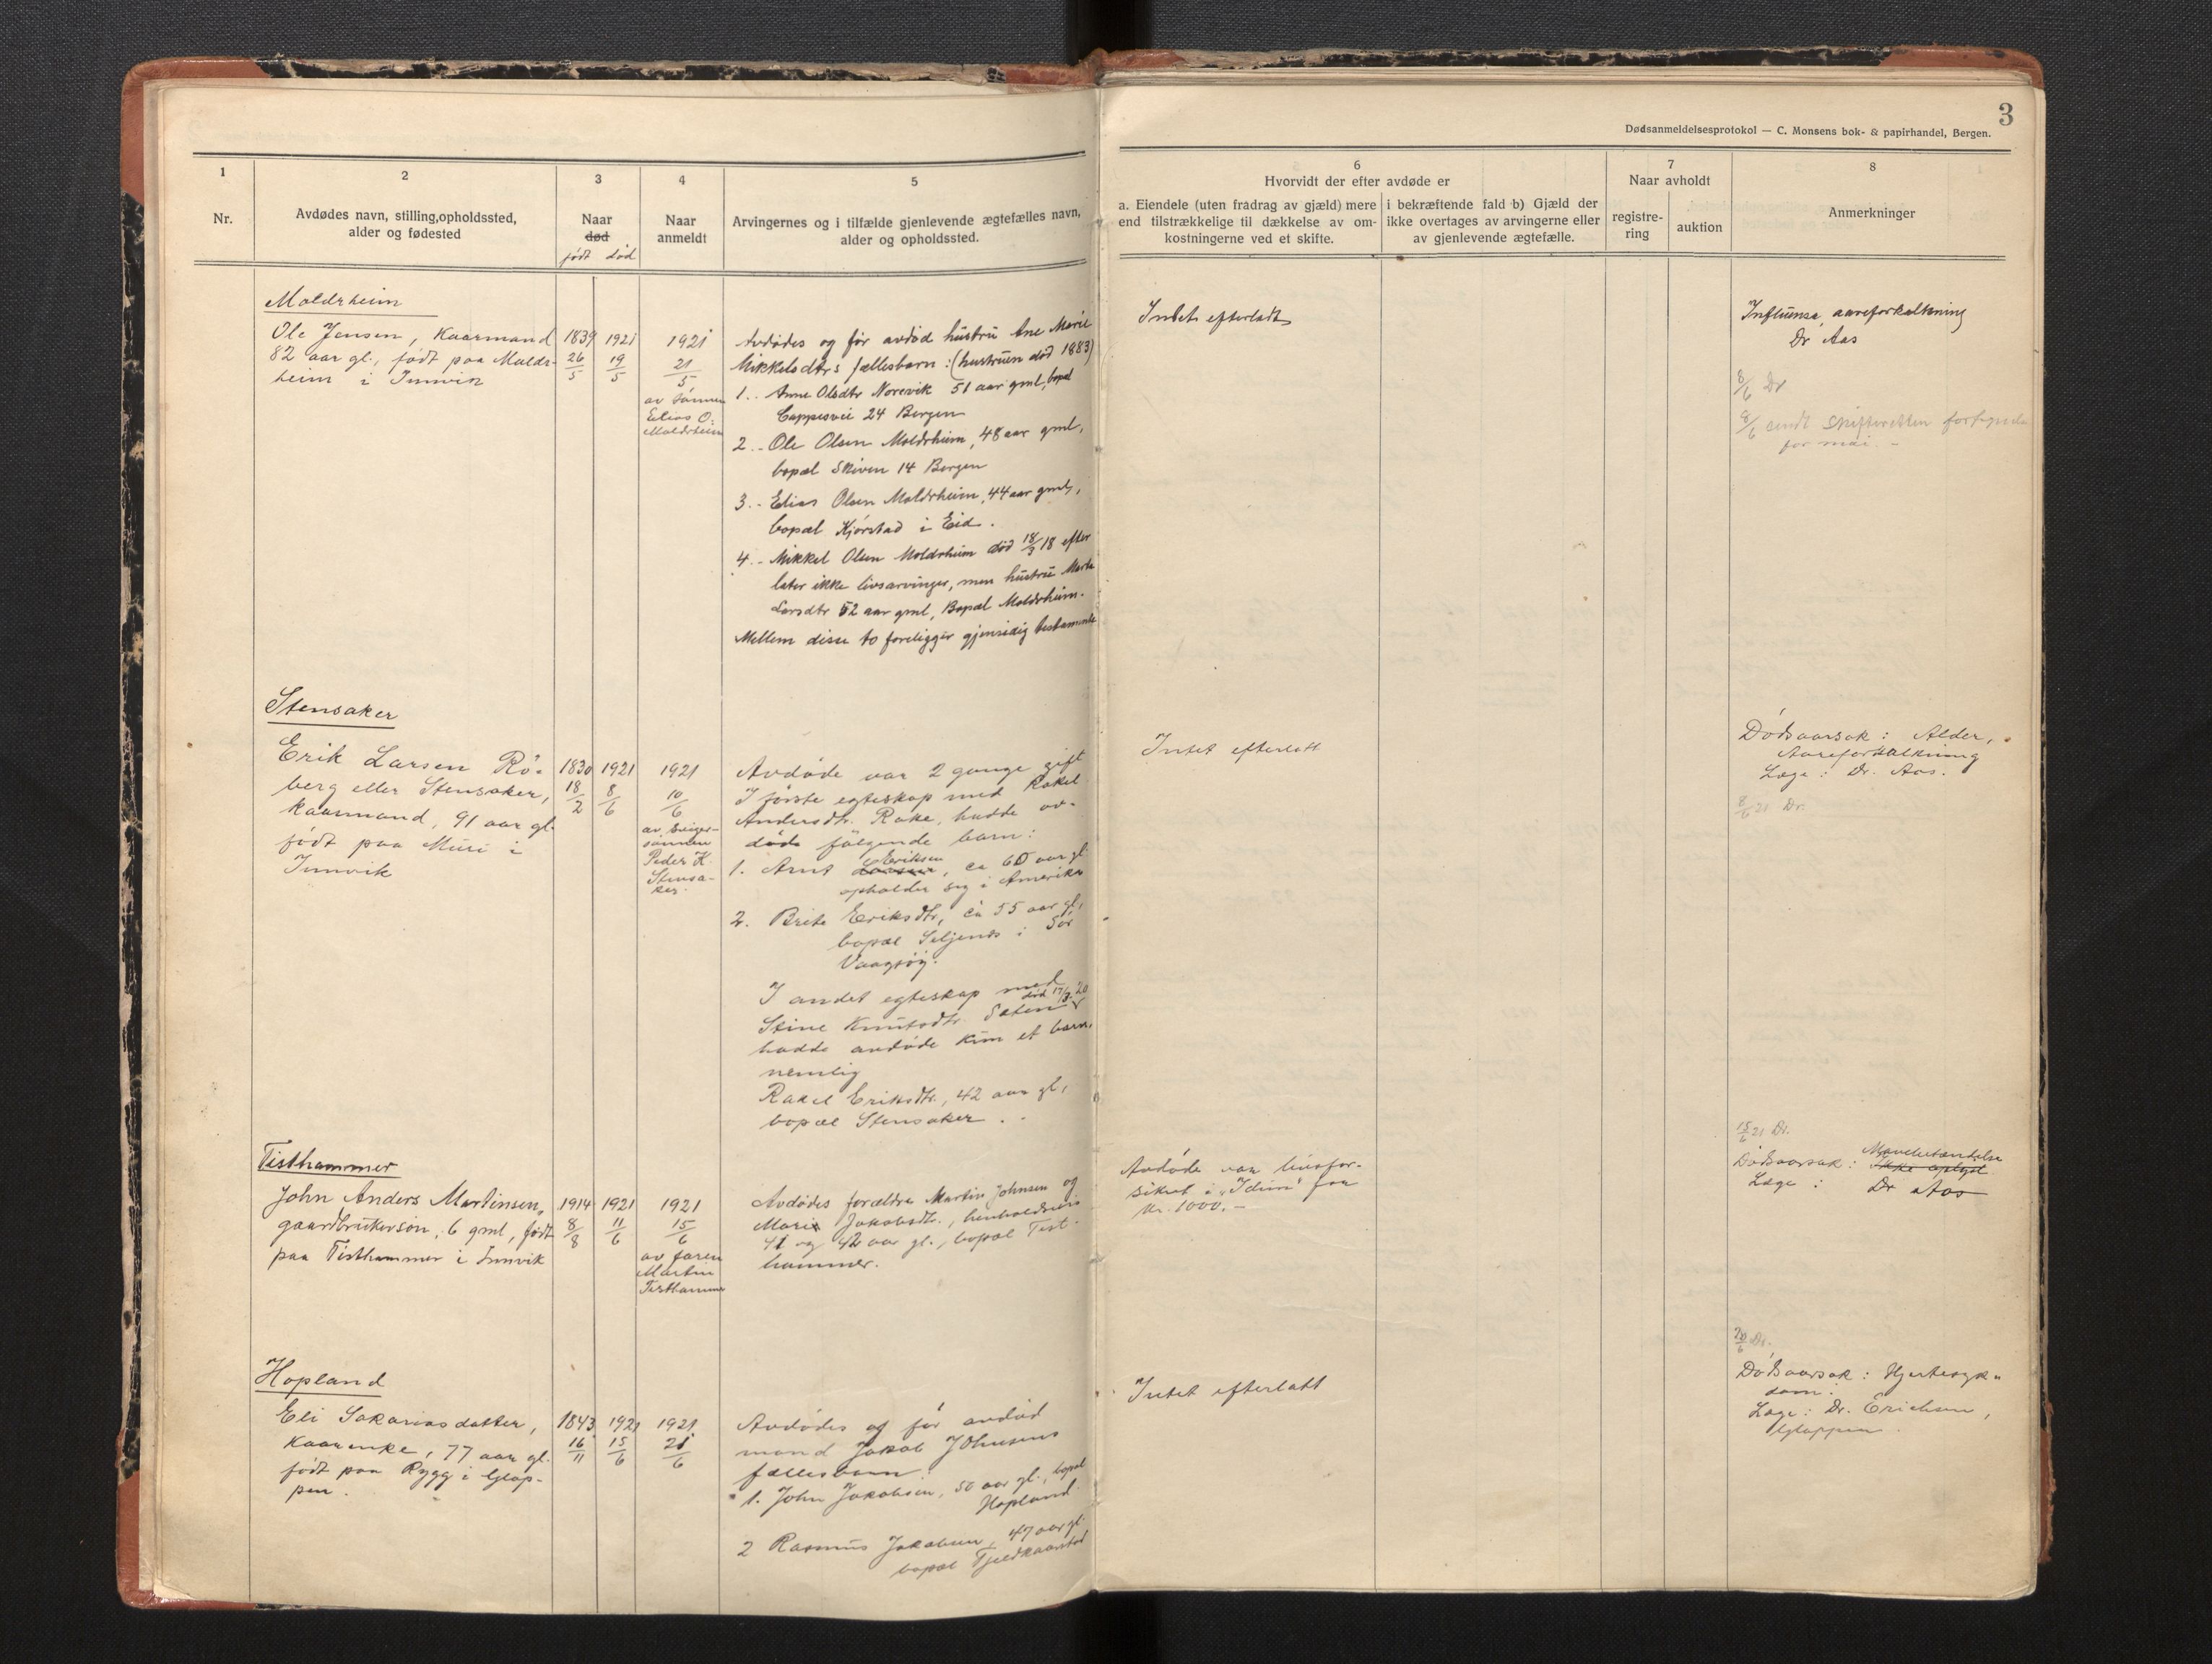 3
Dødsanmeldelsesprotokol — C. Monsens bok- & papirhandel, Bergen.
1
Nr.
2
Avdødes navn, stilling, opholdssted,
alder og fødested
3
Naar
død
født død
4
Naar
anmeldt
5
Arvingernes og i tilfælde gjenlevende ægtefælles navn,
alder og opholdssted.
6
Hvorvidt der efter avdøde er
a. Eiendele (uten fradrag av gjæld) mere
end tilstrækkelige til dækkelse av om-
kostningerne ved et skifte.
i bekræftende fald b) Gjæld der
ikke overtages av arvingerne eller
av gjenlevende ægtefælle.
7
Naar avholdt
registre-
ring
auktion
8
Anmerkninger
Moldrheim
Ole Jensen, Kaarmand
82 aar gl., født paa Moldr-
heim i Innvik
1839
26/5
1921
19/5
1921
21/5
av sønnen
Elias O.
Moldrheim
Avdødes og før avdød hustru Ane Marie
Mikkelsdtrs fællesbarn: (hustruen död 1883)
1.. Anne Olsdtr Norevik 51 aar gml, bopæl
Cappesvei 24 Bergen
2.. Ole Olsen Moldrheim, 48 aar gml,
bopæl Skiven 14 Bergen
3.. Elias Olsen Moldrheim, 44 aar gml,
bopæl Kjörstad i Eid.
4.. Mikkel Olsen Moldrheim död 18/3 18 efter
later ikke livsarvinger, men hustru Marta
Larsdtr 52 aar gml, Bopæl Moldrheim.
Mellem disse to foreligger gjensidig testamente
Intet efterladt
Influensa, aareforkalkning
Dr Aas
8/6 Dr
8/6 sendt Skifteretten fortegnelse
for mai. -
Stensaker
Erik Larsen Rö-
berg eller Stensaker,
Kaarmand, 91 aar gl.
födt paa Muri i
Innvik
1830
18/2
1921
8/6
1921
10/6
av sviger-
sönnen
Peder K.
Stensa-
ker.
Avdöde var 2 gange gift
I förste egteskap med Rakel
Andersdtr. Rake, hadde av-
döde fölgende barn:
1. Arnt Larsen Eriksen, ca 60 aar gl.
opholder sig i Amerika
2. Brite Eriksdtr, ca 55 aar gl,
bopæl Seljenes i Sör
Vaagsöy.
I andet egteskap med
Stine Knutsdtr. Sæten död 17/3 20
hadde avdöde kun et barn,
nemlig
Rakel Eriksdtr., 42 aar gl,
bopæl Stensaker.
Intet efterlatt
Dödsaarsak: Alder,
Aareforkalkning
Læge: Dr. Aas.
8/6 21 Dr.
Tisthammer
John Anders Martinsen,
gaardbrukersön, 6 gml, født
paa Tisthammer i Innvik
1914
8/8
1921
11/6
1921
15/6
av faren
Martin
Tisthammer
Avdödes forældre Martin Johnsen og
Marie Jakobsdtr., henholdsvis
41 og 42 aar gl., bopæl Tist-
hammer.
Avdöde var livsfor-
sikret i „Idun" for
kr. 1000.-
15/6 21 Dr.
Dödsaarsak: Ikke oplyst Mavebetændelse
Læge: Dr Aas
Hopland
Eli Sakariasdatter,
Kaarenke, 77 aar gl.
födt paa Rygg i Glop-
pen.
1843
16/11
1921
15/6
1921
21/6
Avdödes og før avdöd
mand Jakob Johnsens
fællesbarn:
1. John Jakobsen, 50 aar gl., bopæl
Hopland
2 Rasmus Jakobsen, 47 aar gl.
bopæl Fjeldkaarstad
Intet efterlatt
20/6 Dr.
Dödsaarsak: Hjertesyk-
dom.
Læge: Dr. Erichsen,
Gloppen.